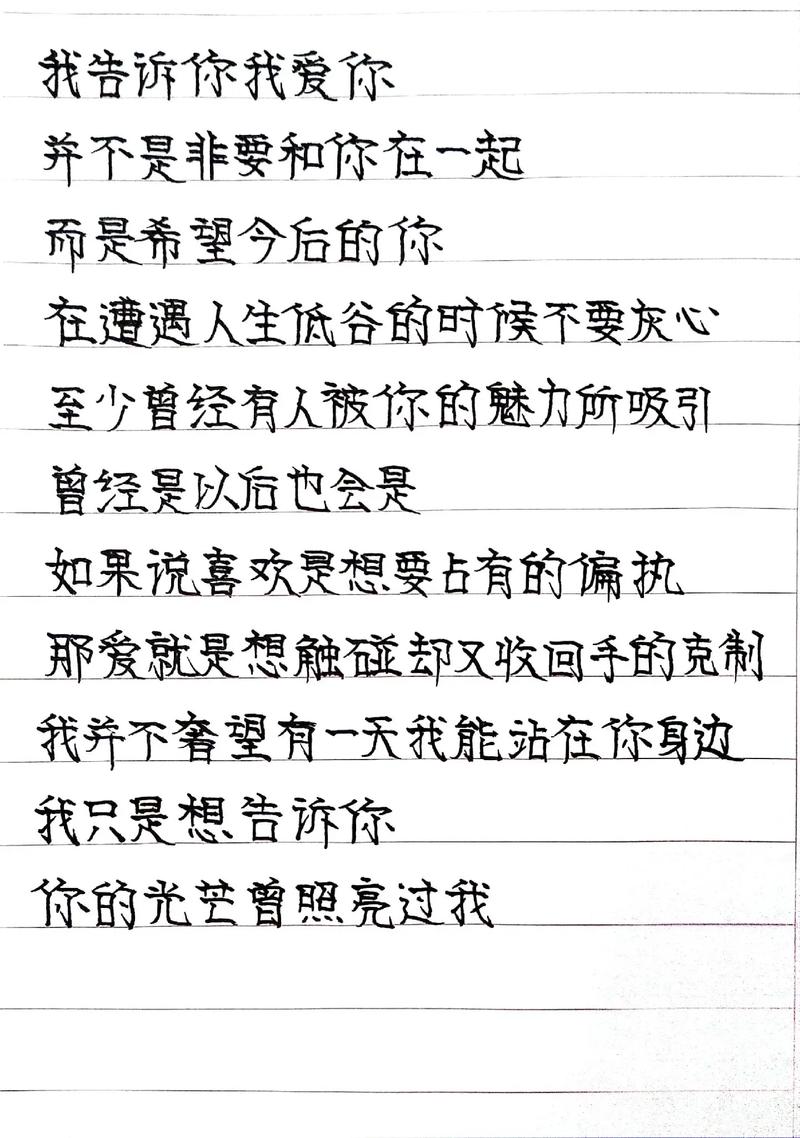 我告诉你我爱你
并不是非要和你在一起
而是希望今后的你
在遭遇人生低谷的时候不要灰心
至少曾经有人被你的魅力所吸引
曾经是以后也会是
如果说喜欢是想要占有的偏执
那爱就是想触碰却又收回手的克制
我并不奢望有一天我能站在你身边
我只是想告诉你
你的光芒曾照亮过我